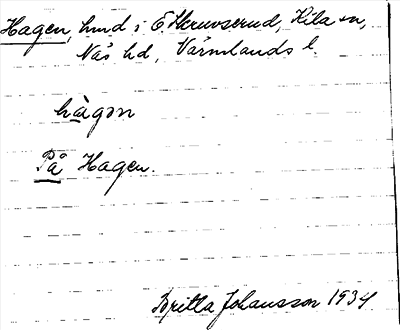 Hagen, hmd i Ö. Skruvserud, Kila sn,
Näs hd, Värmlands l.
hàgən
På Hagen.
Britta Johansson 1934